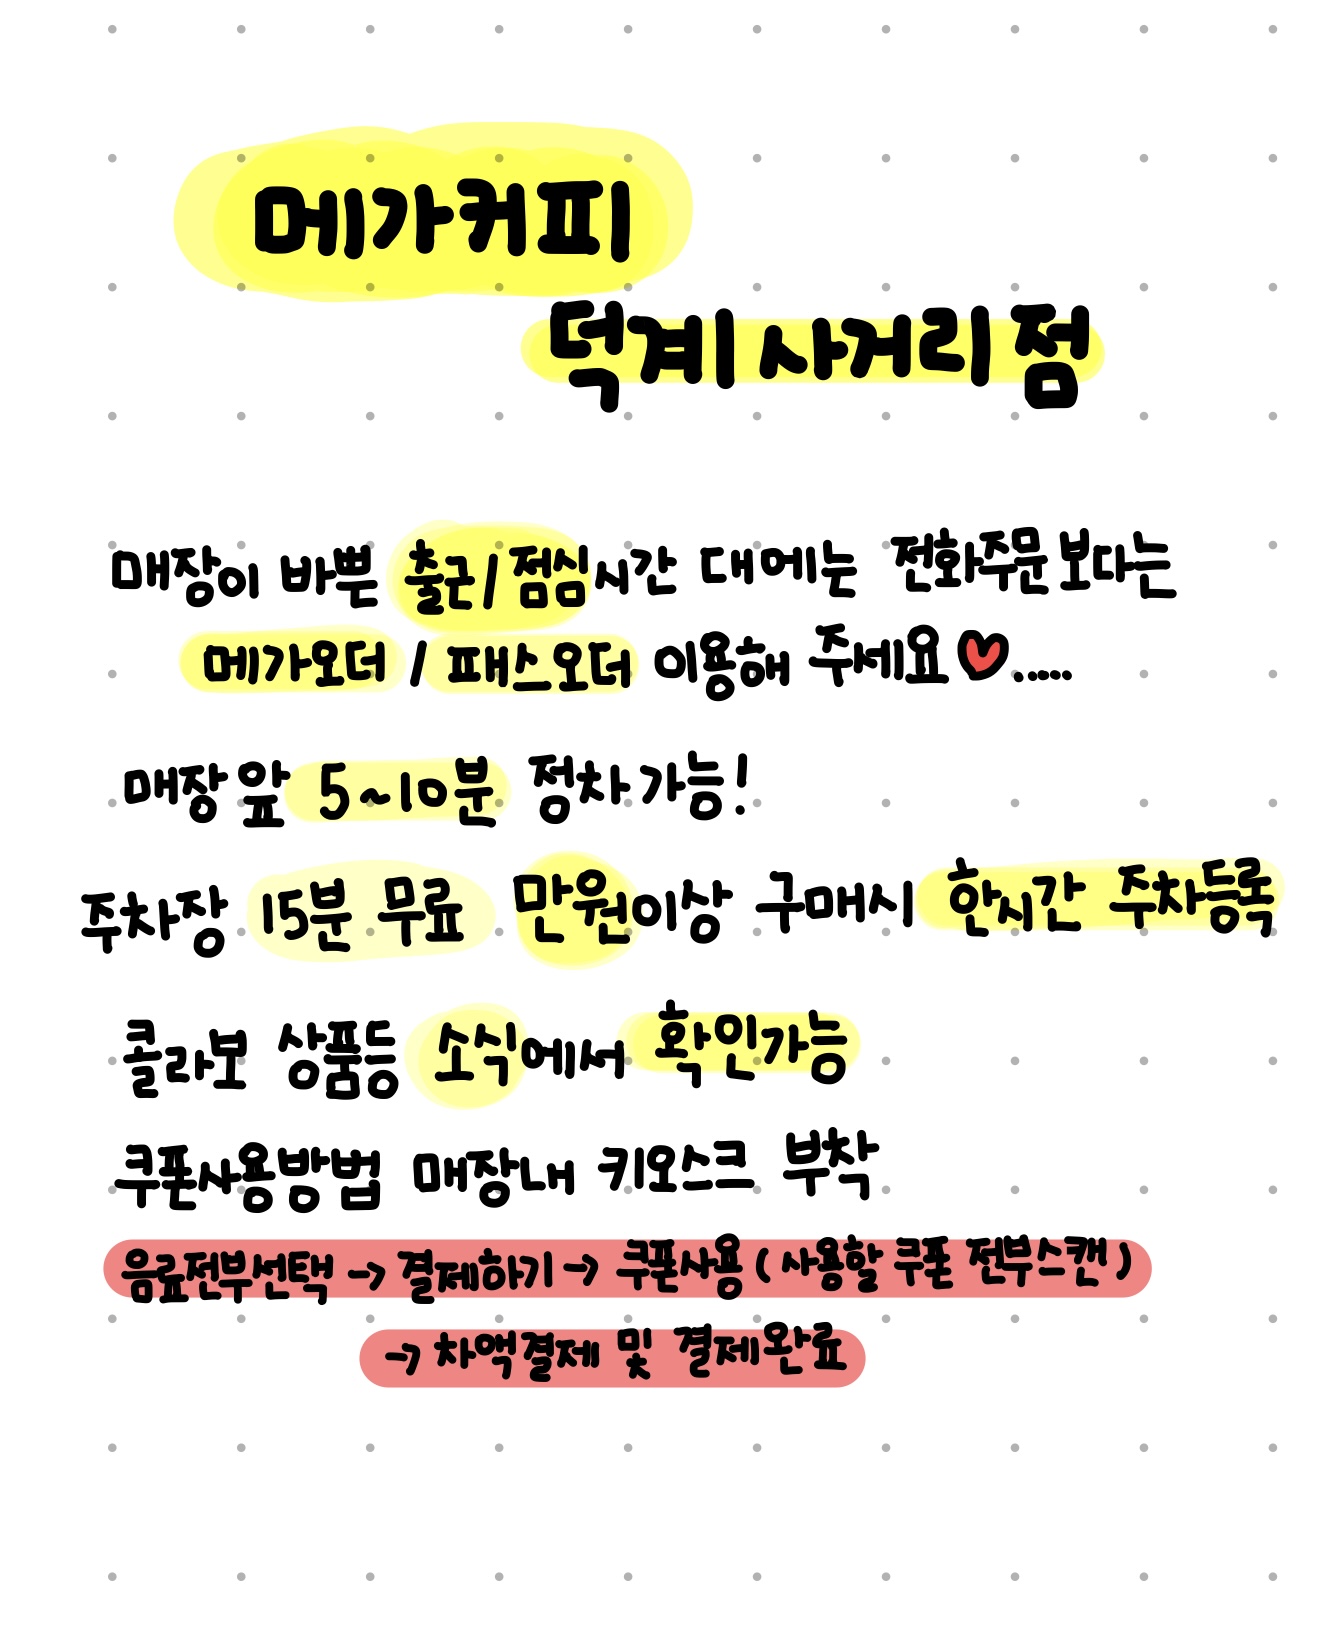 메가커피
덕계사거리점
매장이 바쁜 출근/점심시간 대에는 전화주문보다는
메가오더 / 패스오더 이용해 주세요♥.....
매장앞 5~10분 정차가능!
주차장 15분 무료 만원이상 구매시 한시간 주차등록
콜라보 상품등 소식에서 확인가능
쿠폰사용방법 매장내 키오스크 부착
음료전부선택 -> 결제하기 -> 쿠폰사용 (사용할 쿠폰 전부스캔)
-> 차액결제 및 결제완료